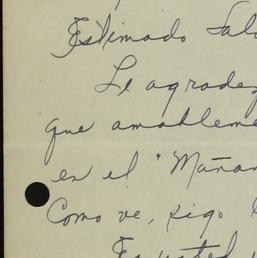 Estimado Sal
Le agradez
que amableme
en el "Mañan
Como ve, sigo
Es usted